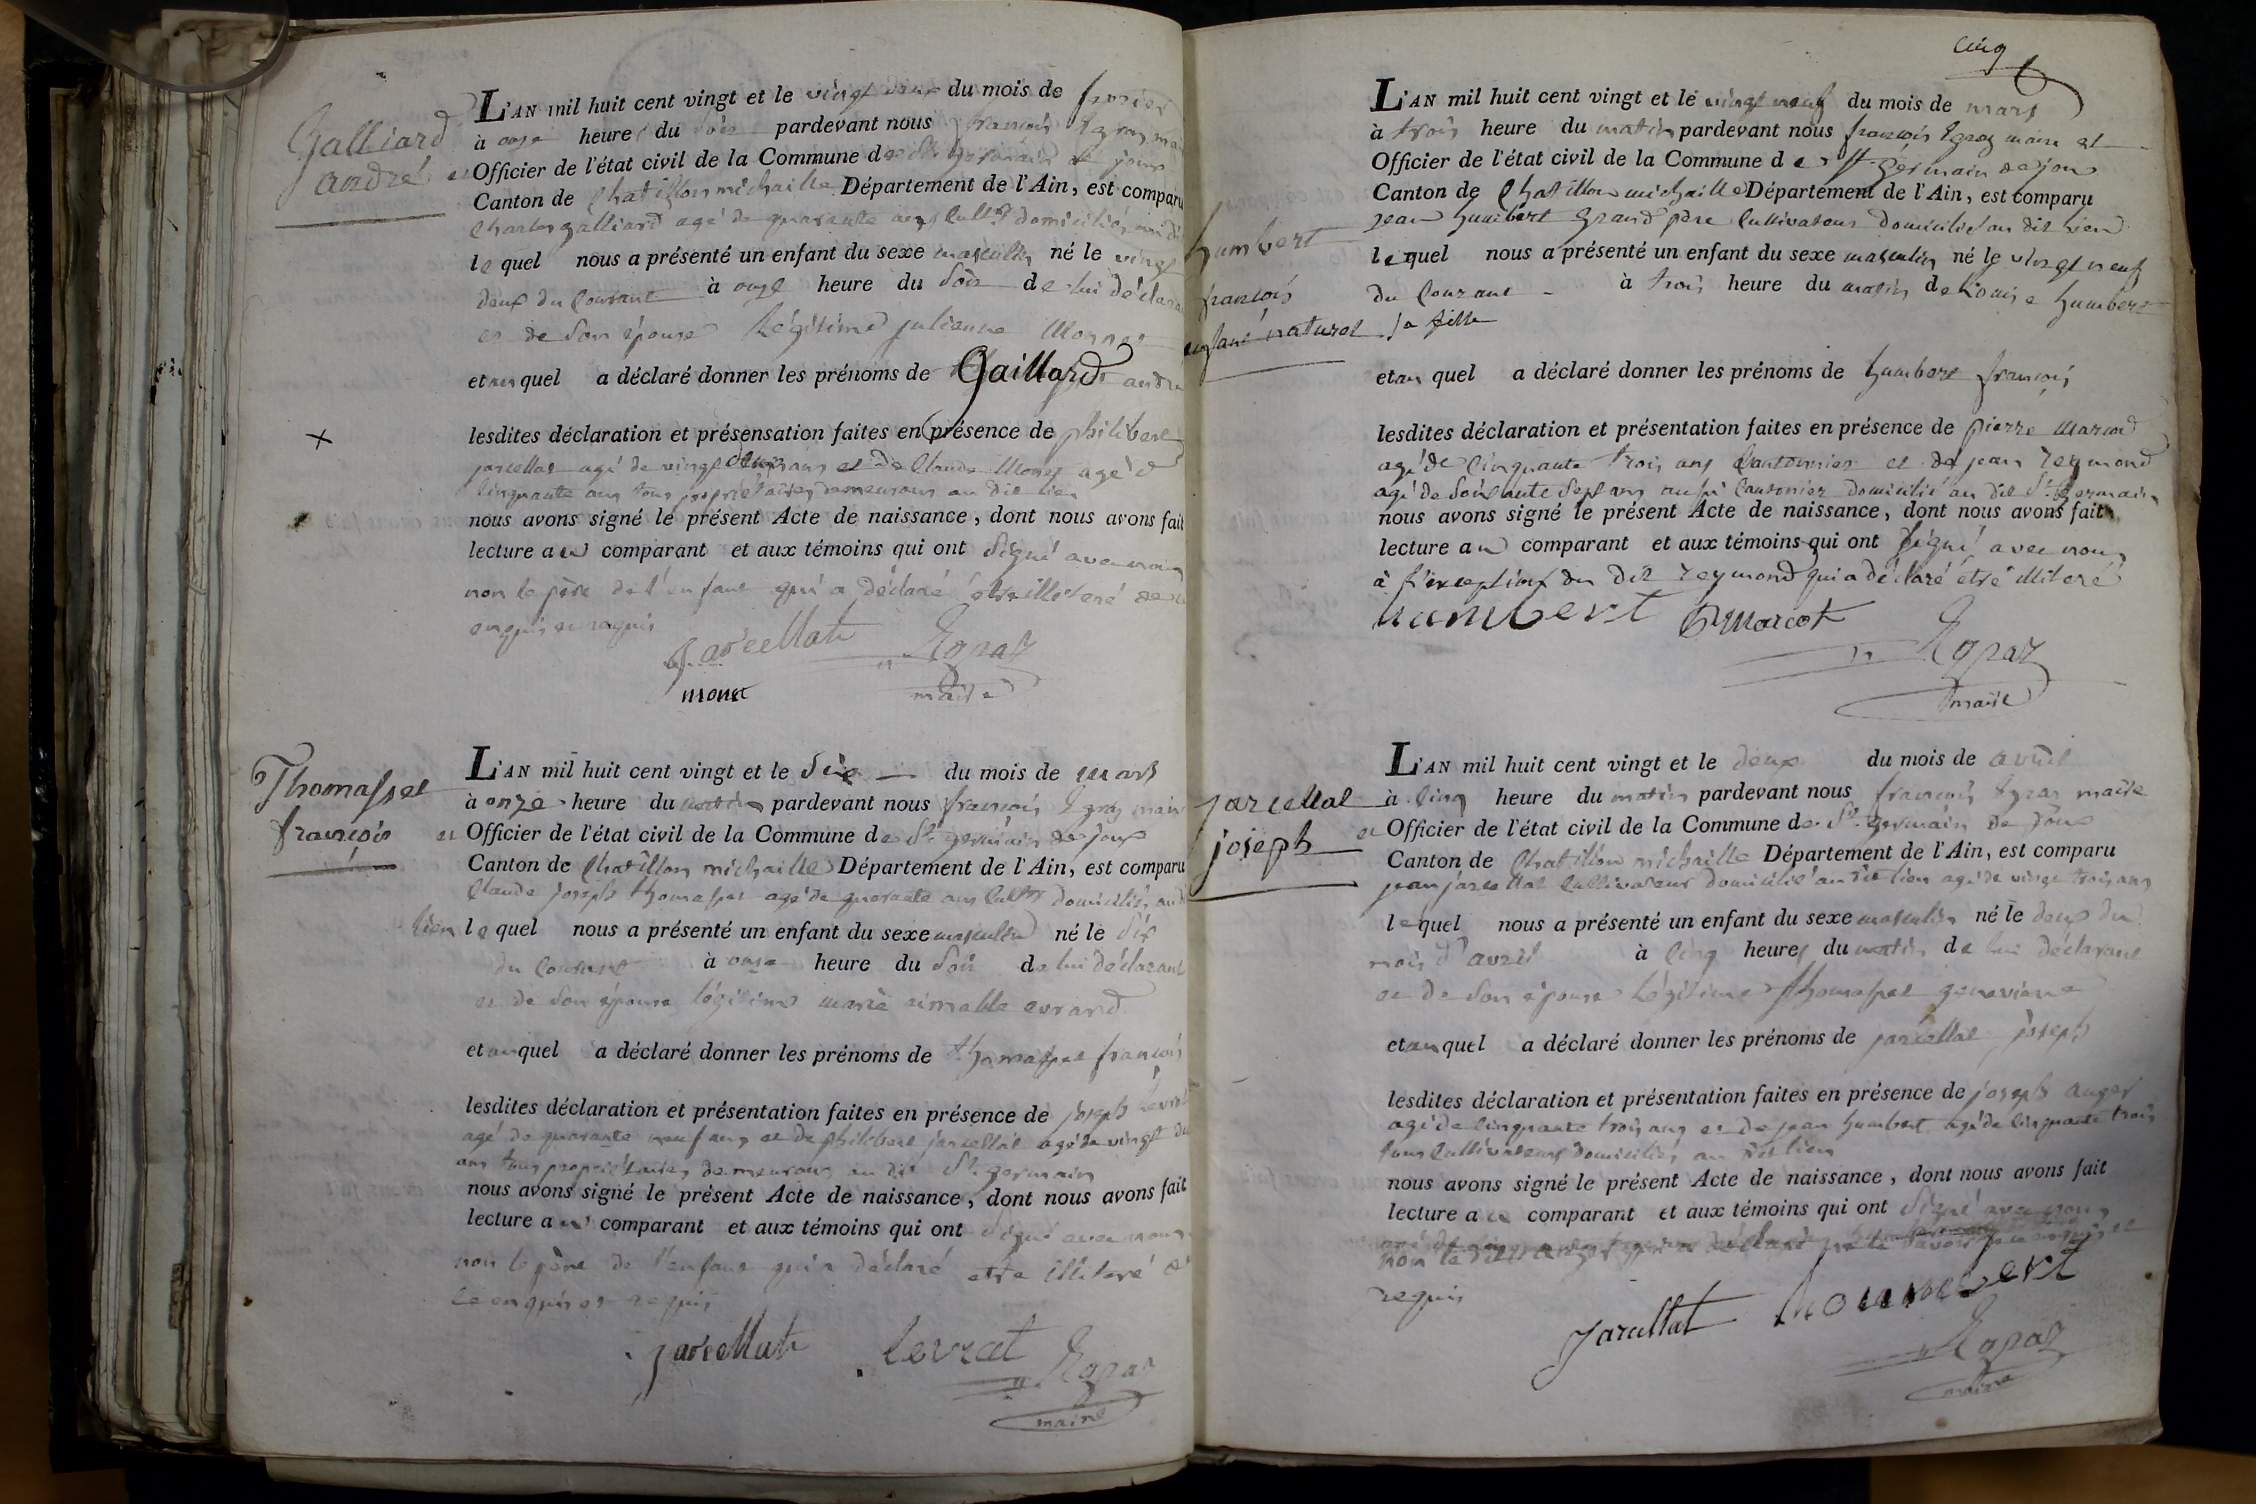 Galliard
andré
L'AN mil huit cent vingt et le vingt deux du mois de
à onze heure du soir pardevant nous françois Egraz
et Officier de l'état civil de la Commune de St germain de joux
Canton de Chatillon michaille Département de l'Ain, est comparu
Charles galliard agé de quarante ans Cultr domicilié
le quel nous a présenté un enfant du sexe masculin né le vingt
deux du Courant à onze heure du soir de lui déclarant
et de son épouse légitime julienne
et au quel a déclaré donner les prénoms de Gaillard andré
lesdites déclaration et présensation faites en présence de philibert
+
jarcellat agé de vingt deux ans et de Claude agé de
Cinquante ans tous propriétaires demeurans au dit lieu
nous avons signé le présent Acte de naissance, dont nous avons fait
lecture au comparant et aux témoins qui ont signé avec nous
non le père de l'enfant qui a déclaré être illiteré de
enquis et requis
jarcellat Egraz
monet maire
Thomasset
françois
L'AN mil huit cent vingt et le du mois de mars
à onze heure du matin pardevant nous françois Egraz maire
et Officier de l'état civil de la Commune de St germain de joux
Canton de Chatillon michaille Département de l'Ain, est comparu
Claude joseph thomasset agé de quarante ans Cultr domicilié au dit
lieu le quel nous a présenté un enfant du sexe masculin né le
du Courant à onze heure du soir de lui déclarant
et de son épouse légitime marie aimable evrard
et au quel a déclaré donner les prénoms de thomasset françois
lesdites déclaration et présentation faites en présence de joseph levrat
agé de quarante neuf ans et de philibert jarcellat agé de vingt
ans tous propriétaires demeurans au dit St germain
nous avons signé le présent Acte de naissance, dont nous avons fait
lecture au comparant et aux témoins qui ont signé avec nous
non le père de l'enfant qui a déclaré être illiteré de
ce enquis et requis
jarcellat levrat Egraz
maire
cinq
humbert
françois
enfant naturel
L'AN mil huit cent vingt et le vingt neuf du mois de mars
à trois heure du matin pardevant nous françois Egraz maire et
Officier de l'état civil de la Commune de St germain de joux
Canton de Chatillon michaille Département de l'Ain, est comparu
jean humbert grand père Cultivateur domicilié au dit lieu
le quel nous a présenté un enfant du sexe masculin né le vingt neuf
du Courant à trois heure du matin de Louise humbert
sa fille
et au quel a déclaré donner les prénoms de humbert françois
lesdites déclaration et présentation faites en présence de pierre
agé de Cinquante trois ans Cantonnier et de jean reymond
agé de soixante sept ans aussi Cantonnier domicilié au dit St germain
nous avons signé le présent Acte de naissance, dont nous avons fait
lecture au comparant et aux témoins qui ont signé avec nous
à l'exception du dit reymond qui a déclaré être illiteré
humbert marcot
Egraz
maire
jarcellat
joseph
L'AN mil huit cent vingt et le deux du mois de avril
à Cinq heure du matin pardevant nous françois Egraz maire
et Officier de l'état civil de la Commune de St germain de joux
Canton de Chatillon michaille Département de l'Ain, est comparu
jean jarcellat Cultivateur domicilié au dit lieu agé de vingt trois ans
le quel nous a présenté un enfant du sexe masculin né le deux du
mois d'avril à Cinq heures du matin de lui déclarant
et de son épouse légitime thomasset genevieve
et au quel a déclaré donner les prénoms de jarcellat joseph
lesdites déclaration et présentation faites en présence de joseph auger
agé de Cinquante trois ans et de jean humbert agé de Cinquante trois
tous Cultivateurs domiciliés au dit lieu
nous avons signé le présent Acte de naissance, dont nous avons fait
lecture au comparant et aux témoins qui ont signé avec nous
non le
requis
jarcellat houmbert
Egraz
maire